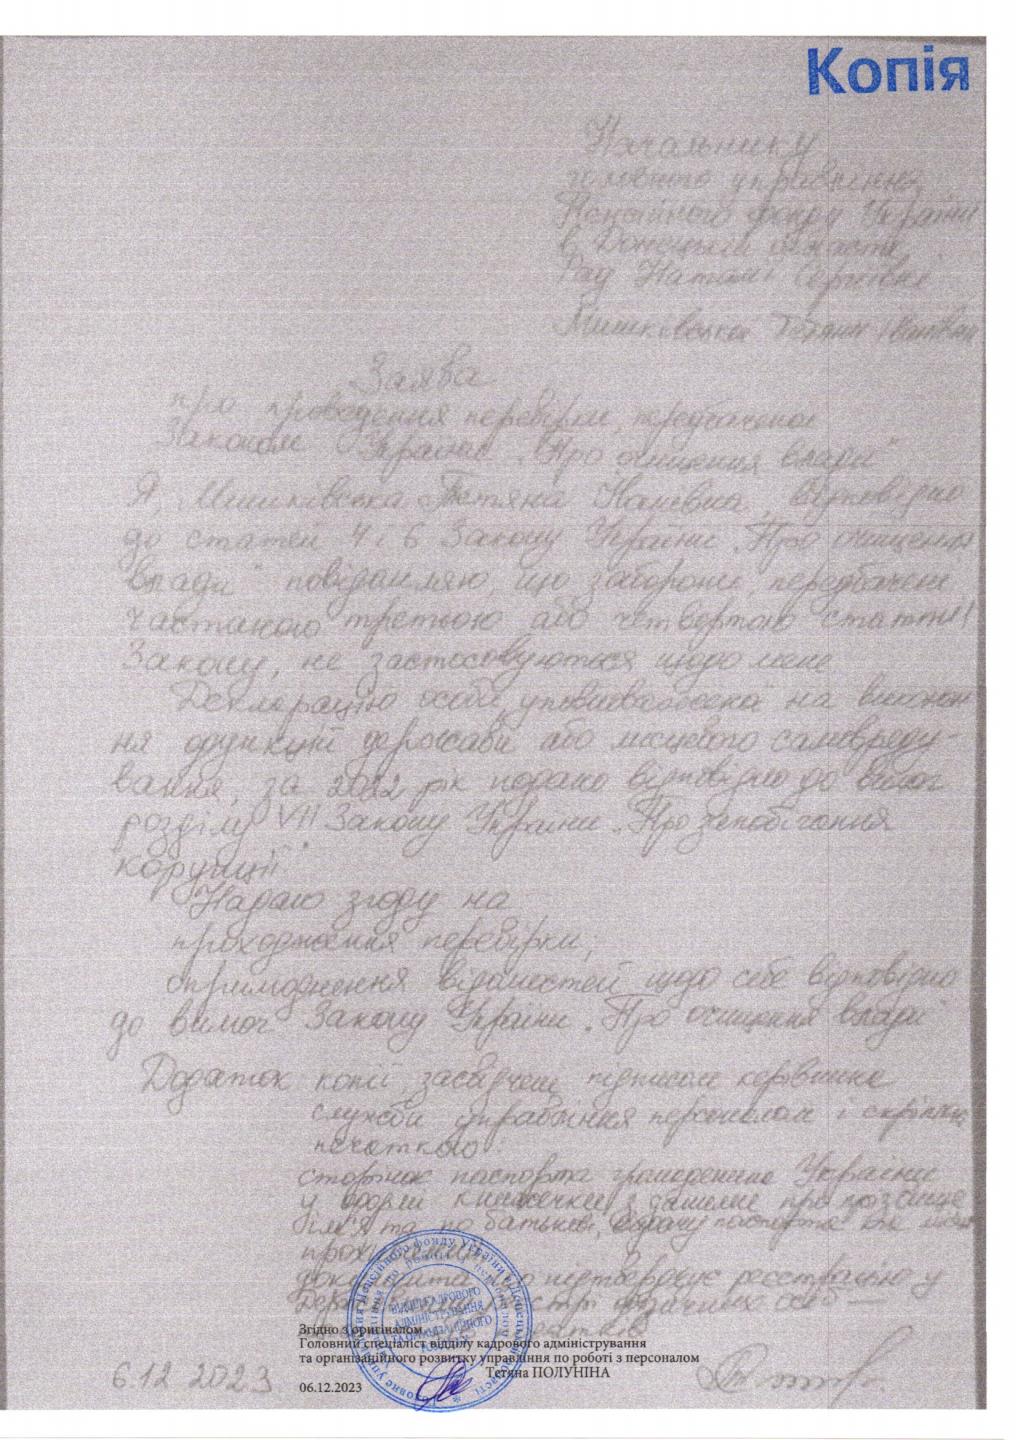 Копія
Начальнику
головного управління
Пенсійного фонду України
в Донецькій області
Рад Наталі Сергіївні
Мишківської Тетяни
Заява
про проведення перевірки, передбаченої
Законом України „Про очищення влади"
Я, Мишківська Тетяна, відповідно
до статей 4 і 6 Закону України „Про очищення
влади" повідомляю, що заборони, передбачені
частиною третьою або четвертою статті 1
Закону, не застосовуються щодо мене
Декларацію особи, уповноваженої на виконан
ня функцій держави або місцевого самовряду-
вання, за 2022 рік подано відповідно до вимог
розділу VII Закону України „Про запобігання
корупції"
Надаю згоду на
проходження перевірки;
оприлюднення відомостей щодо себе відповідно
до вимог Закону України „Про очищення влади"
Додаток копії, засвідчені підписом керівника
служби управління персоналом і скріплені
печаткою:
сторінок паспорта громадянина України
у формі книжечки з даними про прізвище
ім'я та по батькові, видачу паспорта та місце
документа про підтверджує реєстрацію у
Державному реєстрі фізичних осіб
ВІДДІЛ КАДРОВОГО
АДМІНІСТРУВАННЯ
ТА ОРГАНІЗАЦІЙНОГО
РОЗВИТКУ
Згідно з оригіналом
Головний спеціаліст відділу кадрового адміністрування
та організаційного розвитку управління по роботі з персоналом
Тетяна ПОЛУНІНА
06.12.2023
6.12.2023